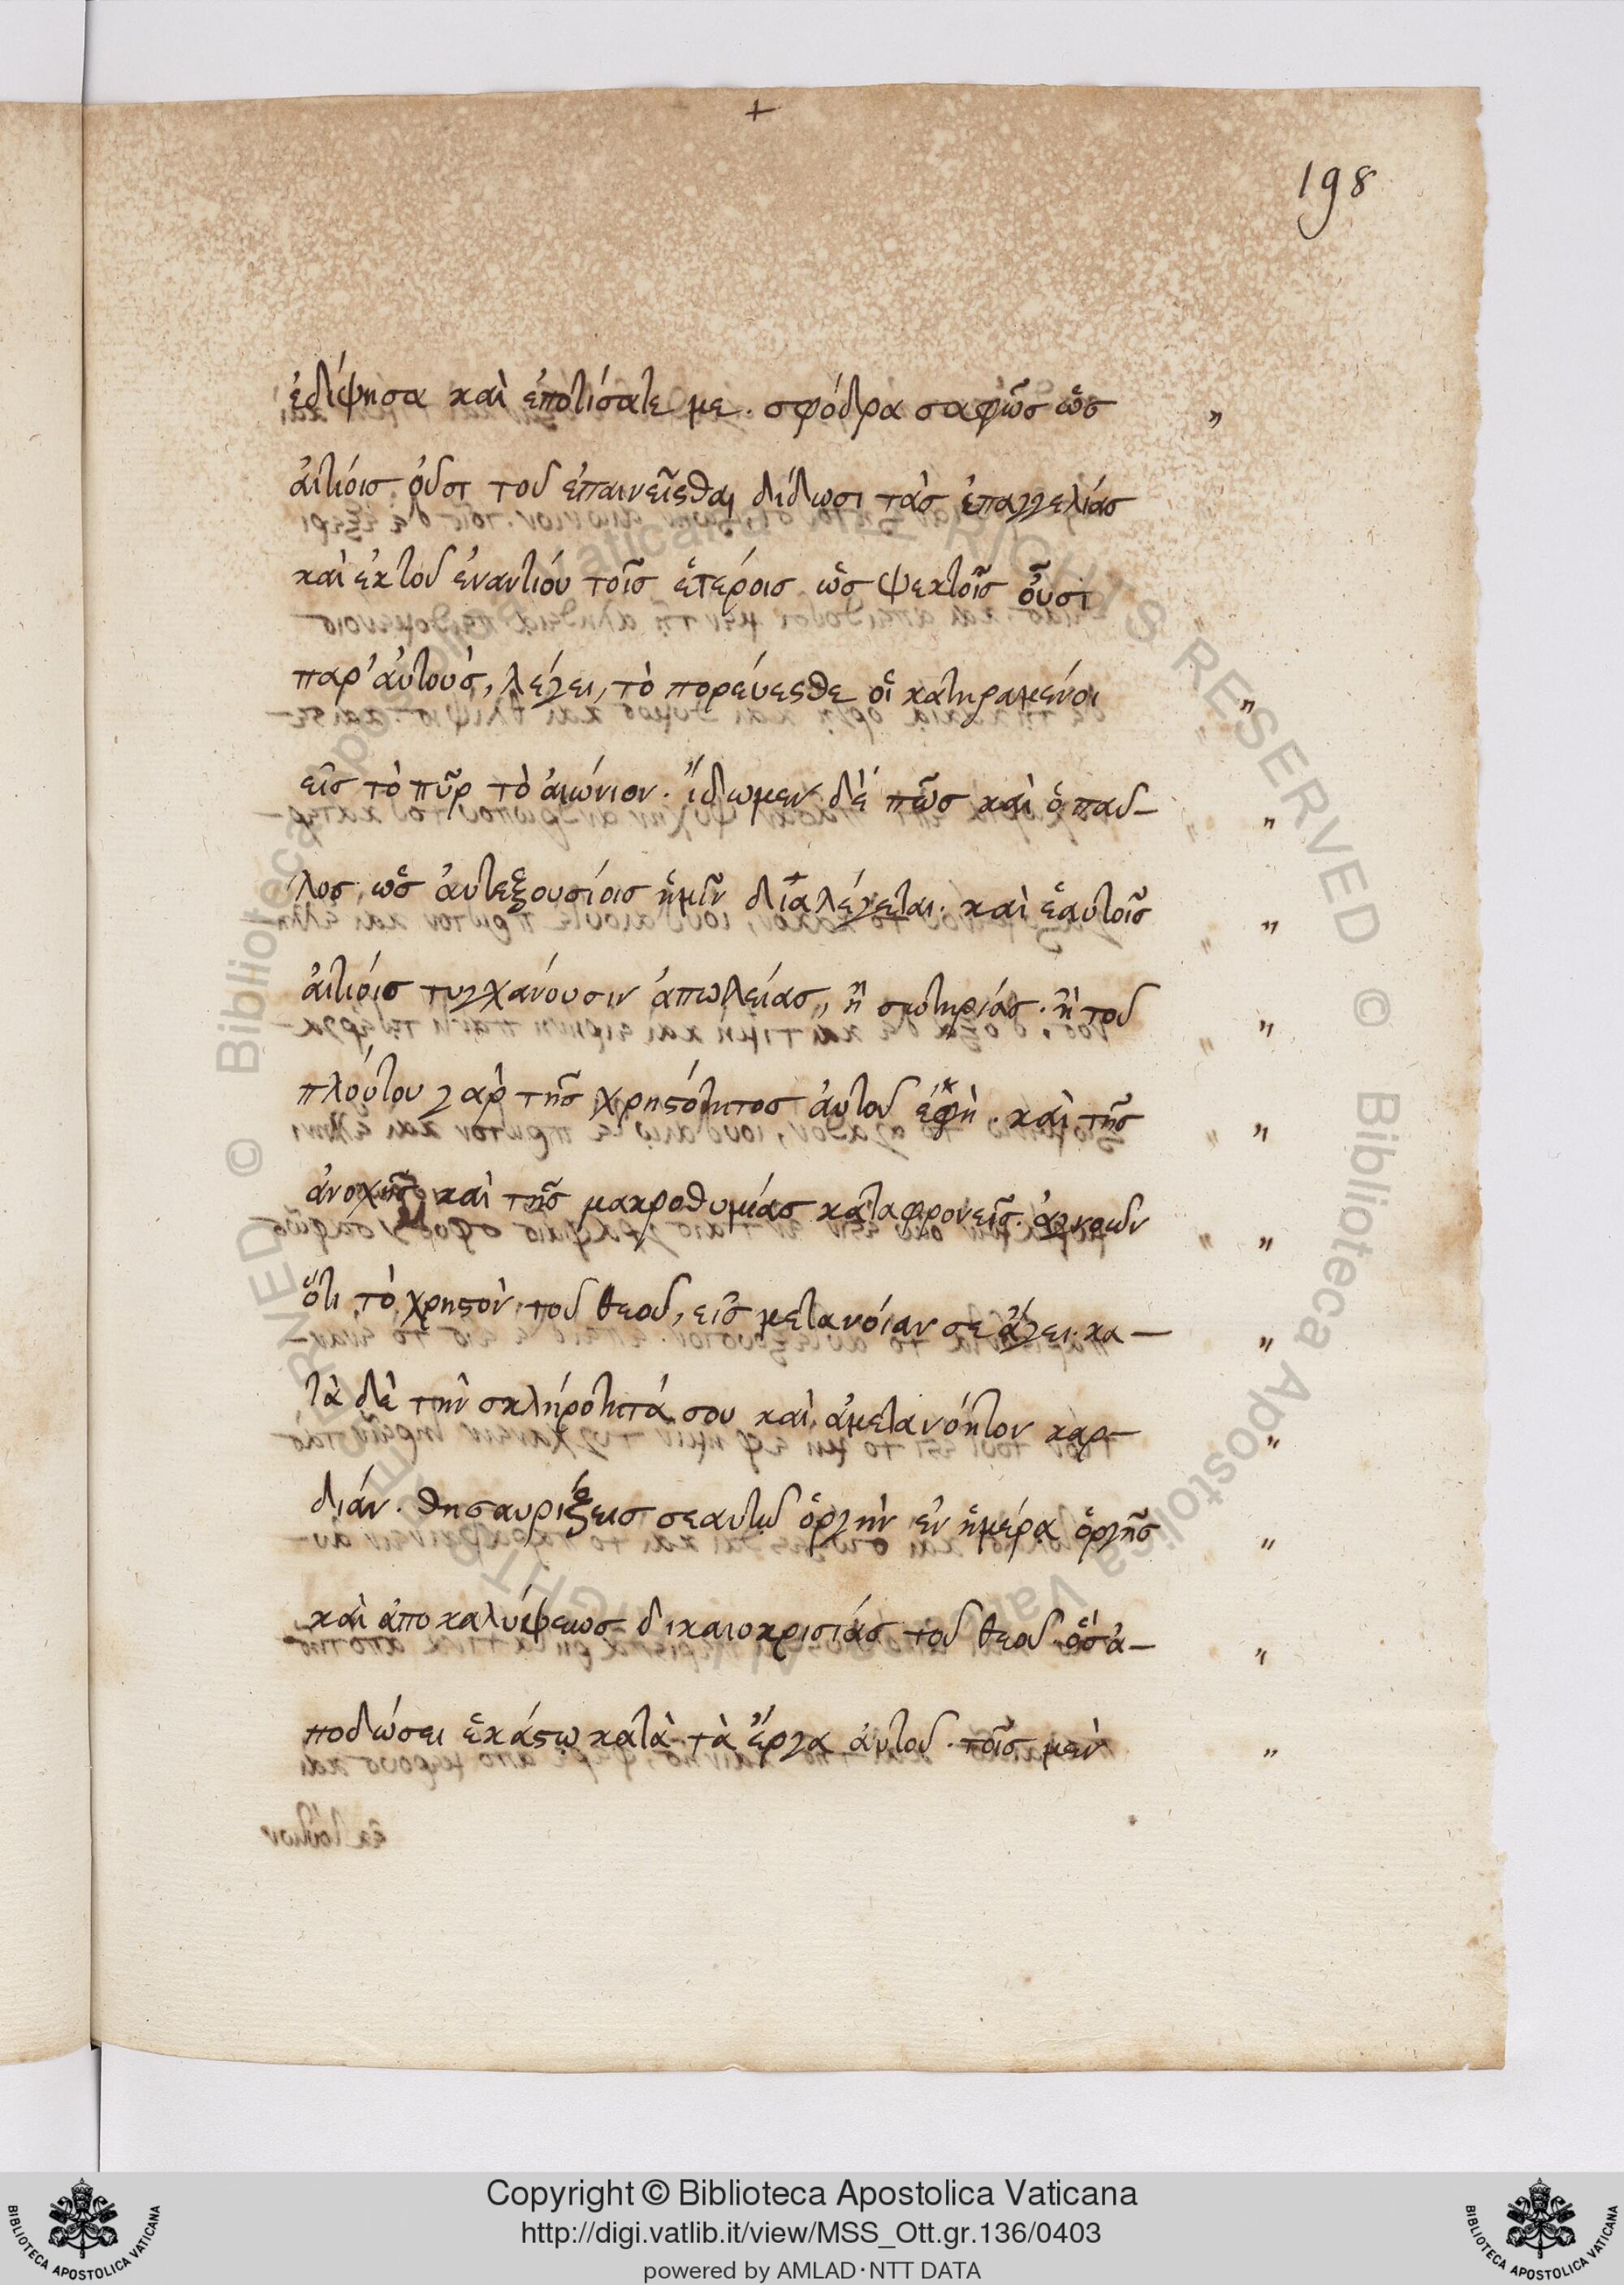 +
198
ἐδίψησα καὶ ἐποτίσατε με. σφόδρα σαφῶσ ὡσ "
ἀιτιόισ οὖσι τοῦ ἐπαινεῖσθαι δίδωσι τὰσ ἐπαγγελιάσ
καὶ ἐκτοῦ ἐναντιόυ τοῖσ ἑτερόισ ὡσ ψεκτοῖσ οὖσι
παρ' ἀυτούσ, λέγει, τὸ πορέυεσθε οἱ κατηραμένοι "
εἰσ τὸ πῦρ τὸ ἀιώνιον. ἴδωμεν δὲ πῶσ καὶ ὁ παῦ– "
λοσ ὡσ ἀυτεξουσίοισ ἡμῖν διαλέγεται. καὶ ἑαυτοῖσ "
ἀιτιόισ τυγχανόυσιν ἀπωλείασ, ἢ σωτηριάσ. ἢ τοῦ "
πλούτου γὰρ τῆσ χρηϛότητοσ ἀυτοῦ ἐφὴ. καὶ τῆσ "
ἀνοχῆσ καὶ τῆσ μακροθυμίασ καταφρονεῖσ. ἀγνοῶν "
ὅτι τὸ χρηϛὸν τοῦ θεοῦ, εἰσ μετανόιαν σε ἄγει. κα– "
τὰ δὲ τὴν σκληρότητά σου καὶ ἀμετανόητον καρ– "
δίαν. θησαυρίζεισ σεαυτῷ ὀργὴν ἐν ἡμέρα ὀργῆσ "
καὶ ἀποκαλύψεωσ δικαιοκρισίασ τοῦ θεοῦ. ὃσ ἀ– "
ποδώσει ἑκάϛῳ κατὰ τὰ ἔργα ἀυτοῦ. τοῖσ μὲν "
Copyright © Biblioteca Apostolica Vaticana
http://digi.vatlib.it/view/MSS_Ott.gr.136/0403
powered by AMLAD·NTT DATA